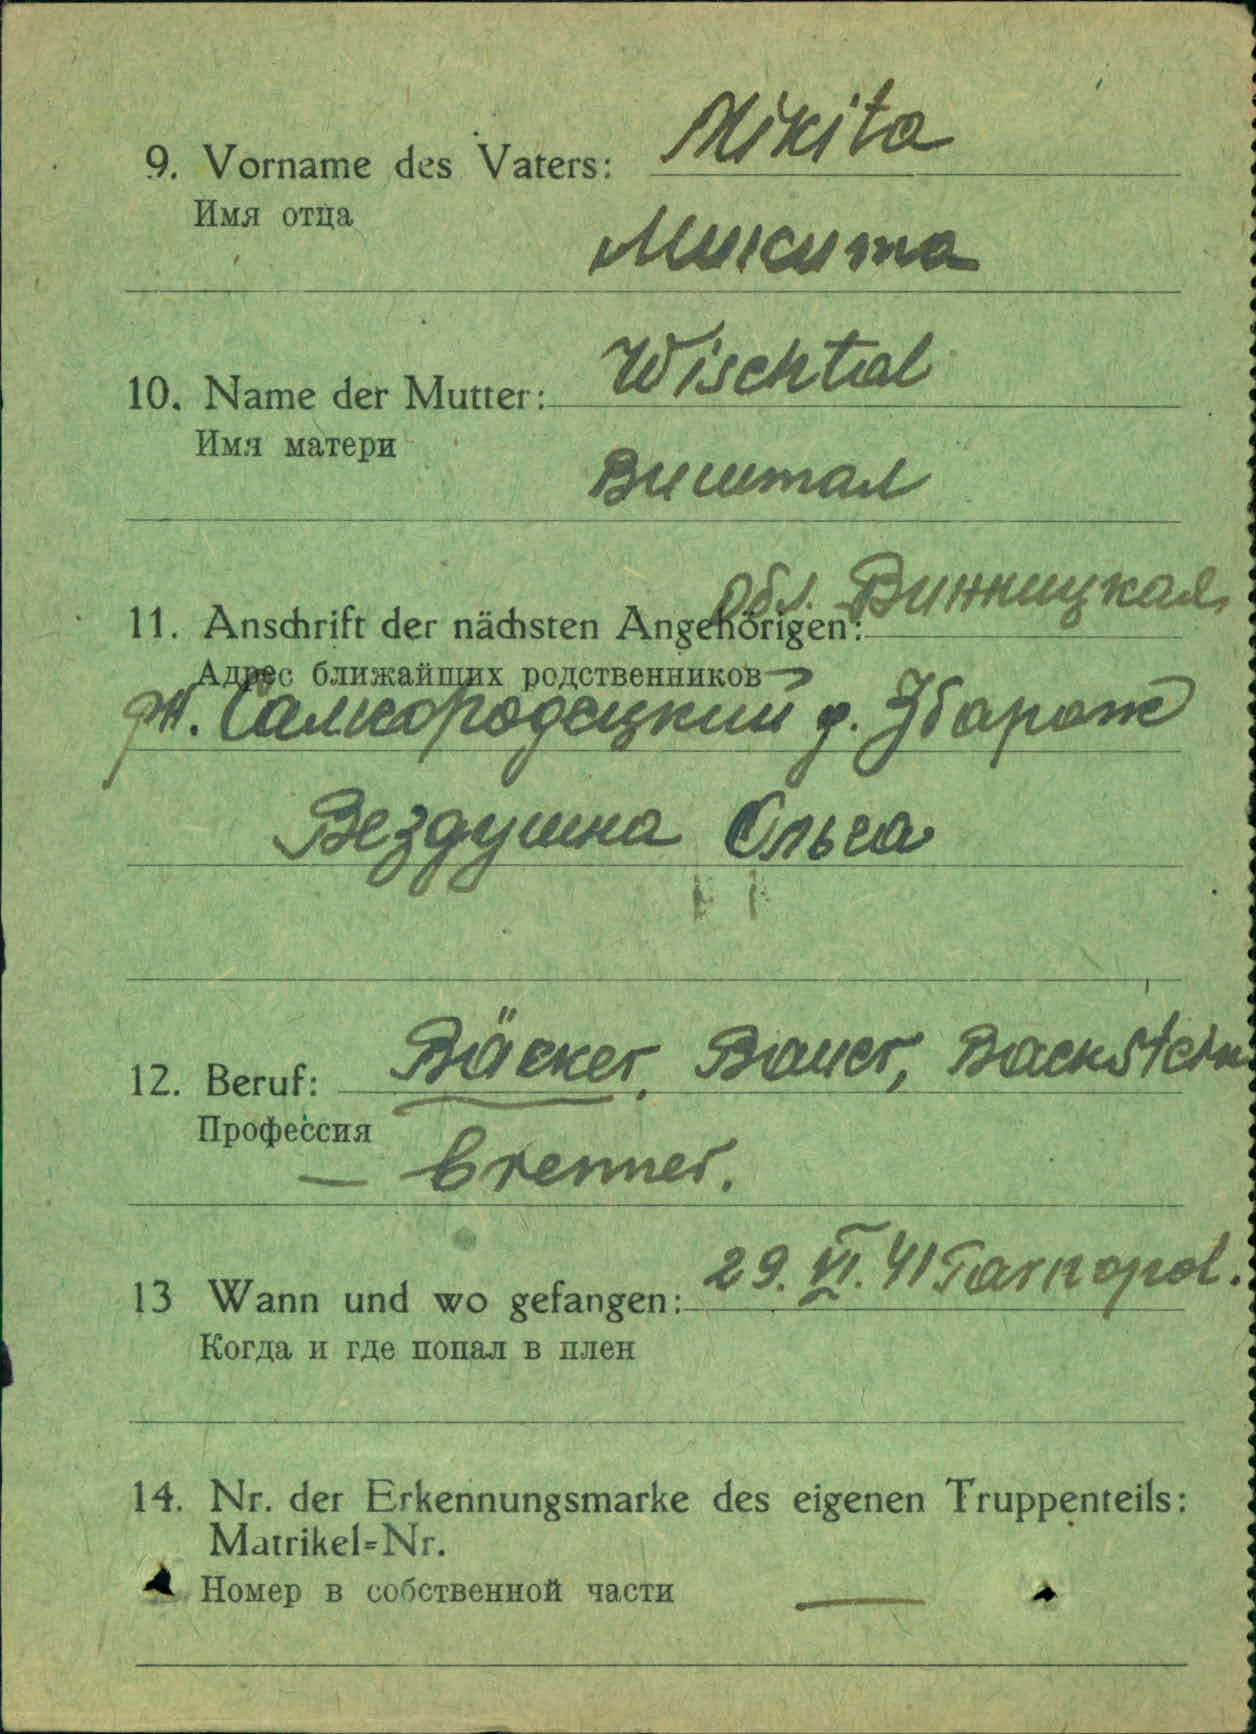 9. Vorname des Vaters: Mikita
Имя отца
Микита
10. Name der Mutter: Wischtal
Имя матери
Виштал
обл. Винницкая,
11. Anschrift der nächsten Angehörigen:
Адрес ближайших родственников
Самгородецкий д. Збараж
Вездушна Ольга
12. Beruf: Bäcker, Bauer, Backstein
Профессия
— brenner.
13 Wann und wo gefangen: 29. VI. 41 Tarnopol.
Когда и где попал в плен
14. Nr. der Erkennungsmarke des eigenen Truppenteils:
Matrikel=Nr.
Номер в собственной части —